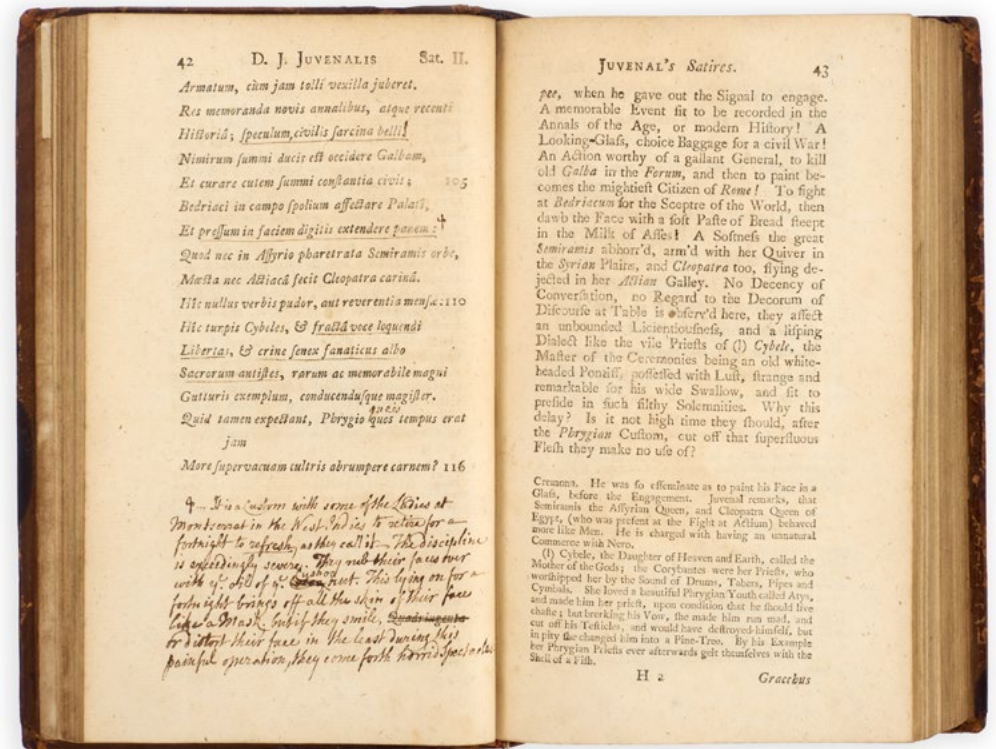 42 D. J. JUVENALIS Sat. II.
Armatum, cùm jam tolli vexilla juberet.
Res memoranda novis annalibus, atque recenti
Hiſtoriâ; ſpeculum, civilis ſarcina belli!
Nimirum ſummi ducis eſt occidere Galbam,
Et curare cutem ſummi conſtantia civis; 105
Bedriaci in campo ſpolium affectare Palatî,
Et preſſum in faciem digitis extendere panem:
Quod nec in Aſſyrio pharetrata Semiramis orbe,
Mœſta nec Actiacâ fecit Cleopatra carinâ.
Hîc nullus verbis pudor, aut reverentia menſæ: 110
Hîc turpis Cybeles, & fractâ voce loquendi
Libertas, & crine ſenex fanaticus albo
Sacrorum antiſtes, rarum ac memorabile magni
Gutturis exemplum, conducenduſque magiſter.
queis
Quid tamen expectant, Phrygio quos tempus erat
jam
More ſupervacuam cultris abrumpere carnem? 116
It is a Custom with some of the Ladies at
Montserrat in the West Indies to retire for a
fortnight to refresh, as they call it — The discipline
is exceedingly severe. They rub their faces over
with yͤ Oil of yͤ Cushoo nut. This lying on for a
fortnight brings off all the skin of their face
like a Mask, but if they smile,
or distort their face in the least during this
painful operation, they come forth horrid Spectacles
JUVENAL's Satires. 43
pee, when he gave out the Signal to engage.
A memorable Event fit to be recorded in the
Annals of the Age, or modern Hiſtory! A
Looking-Glaſs, choice Baggage for a civil War!
An Action worthy of a gallant General, to kill
old Galba in the Forum, and then to paint be-
comes the mightieſt Citizen of Rome! To fight
at Bedriacum for the Sceptre of the World, then
dawb the Face with a ſoft Paſte of Bread ſteept
in the Milk of Aſſes! A Softneſs the great
Semiramis abhorr'd, arm'd with her Quiver in
the Syrian Plains, and Cleopatra too, flying de-
jected in her Actian Galley. No Decency of
Converſation, no Regard to the Decorum of
Diſcourſe at Table is obſerv'd here, they affect
an unbounded Licientiouſneſs, and a liſping
Dialect like the vile Prieſts of (l) Cybele, the
Maſter of the Ceremonies being an old white-
headed Pontiff, poſſeſſed with Luſt, ſtrange and
remarkable for his wide Swallow, and fit to
preſide in ſuch filthy Solemnities. Why this
delay? Is it not high time they ſhould, after
the Phrygian Cuſtom, cut off that ſuperfluous
Fleſh they make no uſe of?
Cremona. He was ſo effeminate as to paint his Face in a
Glaſs, before the Engagement. Juvenal remarks, that
Semiramis the Aſſyrian Queen, and Cleopatra Queen of
Egypt, (who was preſent at the Fight at Actium) behaved
more like Men. He is charged with having an unnatural
Commerce with Nero.
(l) Cybele, the Daughter of Heaven and Earth, called the
Mother of the Gods; the Corybantes were her Prieſts, who
worſhipped her by the Sound of Drums, Tabers, Pipes and
Cymbals. She loved a beautiful Phrygian Youth called Atys,
and made him her prieſt, upon condition that he ſhould live
chaſte; but breaking his Vow, ſhe made him run mad, and
cut off his Teſticles, and would have deſtroyed himſelf, but
in pity ſhe changed him into a Pine-Tree. By his Example
her Phrygian Prieſts ever afterwards gelt themſelves with the
Shell of a Fiſh.
H 2 Gracchus